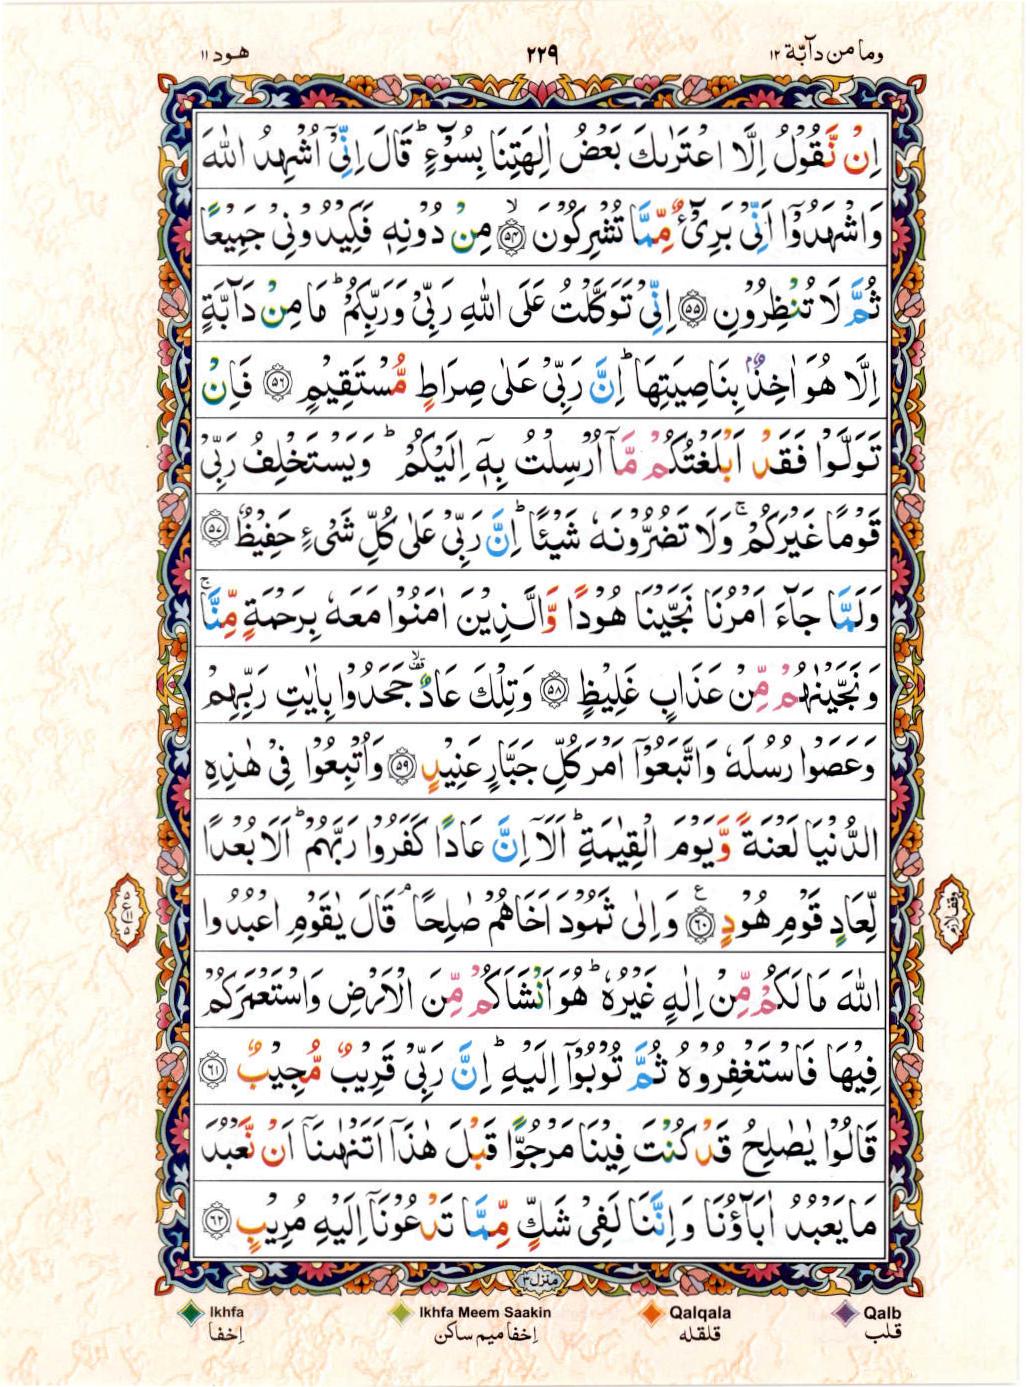 وما من دآبّة ١٢
٢٢٩
هود ١١
اِنْ نَّقُوْلُ اِلَّا اعْتَرٰىكَ بَعْضُ اٰلِهَتِنَا بِسُوْٓءٍ ؕ قَالَ اِنِّىْٓ اُشْهِدُ اللّٰهَ
وَاشْهَدُوْۤا اَنِّىْ بَرِىْٓءٌ مِّمَّا تُشْرِكُوْنَ ۙ﴿٥٤﴾ مِنْ دُوْنِهٖ فَكِيْدُوْنِىْ جَمِيْعًا
ثُمَّ لَا تُنْظِرُوْنِ ﴿٥٥﴾ اِنِّىْ تَوَكَّلْتُ عَلَى اللّٰهِ رَبِّىْ وَرَبِّكُمْ ؕ مَا مِنْ دَآبَّةٍ
اِلَّا هُوَ اٰخِذٌۢ بِنَاصِيَتِهَا ؕ اِنَّ رَبِّىْ عَلٰى صِرَاطٍ مُّسْتَقِيْمٍ ﴿٥٦﴾ فَاِنْ
تَوَلَّوْا فَقَدْ اَبْلَغْتُكُمْ مَّاۤ اُرْسِلْتُ بِهٖۤ اِلَيْكُمْ ؕ وَيَسْتَخْلِفُ رَبِّىْ
قَوْمًا غَيْرَكُمْ ۚ وَلَا تَضُرُّوْنَهٗ شَيْئًا ؕ اِنَّ رَبِّىْ عَلٰى كُلِّ شَىْءٍ حَفِيْظٌ ﴿٥٧﴾
وَلَمَّا جَآءَ اَمْرُنَا نَجَّيْنَا هُوْدًا وَّالَّذِيْنَ اٰمَنُوْا مَعَهٗ بِرَحْمَةٍ مِّنَّا ۚ
وَنَجَّيْنٰهُمْ مِّنْ عَذَابٍ غَلِيْظٍ ﴿٥٨﴾ وَتِلْكَ عَادٌ ۙ قف جَحَدُوْا بِاٰيٰتِ رَبِّهِمْ
وَعَصَوْا رُسُلَهٗ وَاتَّبَعُوْۤا اَمْرَ كُلِّ جَبَّارٍ عَنِيْدٍ ﴿٥٩﴾ وَاُتْبِعُوْا فِىْ هٰذِهِ
الدُّنْيَا لَعْنَةً وَّيَوْمَ الْقِيٰمَةِ ؕ اَلَاۤ اِنَّ عَادًا كَفَرُوْا رَبَّهُمْ ؕ اَلَا بُعْدًا
لِّعَادٍ قَوْمِ هُوْدٍ ﴿٦٠﴾ ع وَاِلٰى ثَمُوْدَ اَخَاهُمْ صٰلِحًا ۘ قَالَ يٰقَوْمِ اعْبُدُوا
وقف لازم
٥ ع ١١ ٥
اللّٰهَ مَا لَكُمْ مِّنْ اِلٰهٍ غَيْرُهٗ ؕ هُوَ اَنْشَاَكُمْ مِّنَ الْاَرْضِ وَاسْتَعْمَرَكُمْ
فِيْهَا فَاسْتَغْفِرُوْهُ ثُمَّ تُوْبُوْۤا اِلَيْهِ ؕ اِنَّ رَبِّىْ قَرِيْبٌ مُّجِيْبٌ ﴿٦١﴾
قَالُوْا يٰصٰلِحُ قَدْ كُنْتَ فِيْنَا مَرْجُوًّا قَبْلَ هٰذَاۤ اَتَنْهٰىنَاۤ اَنْ نَّعْبُدَ
مَا يَعْبُدُ اٰبَآؤُنَا وَاِنَّنَا لَفِىْ شَكٍّ مِّمَّا تَدْعُوْنَاۤ اِلَيْهِ مُرِيْبٍ ﴿٦٢﴾
منزل ٣
Ikhfa Ikhfa Meem Saakin Qalqala Qalb
اِخفا اِخفا میم ساکن قلقله قلب